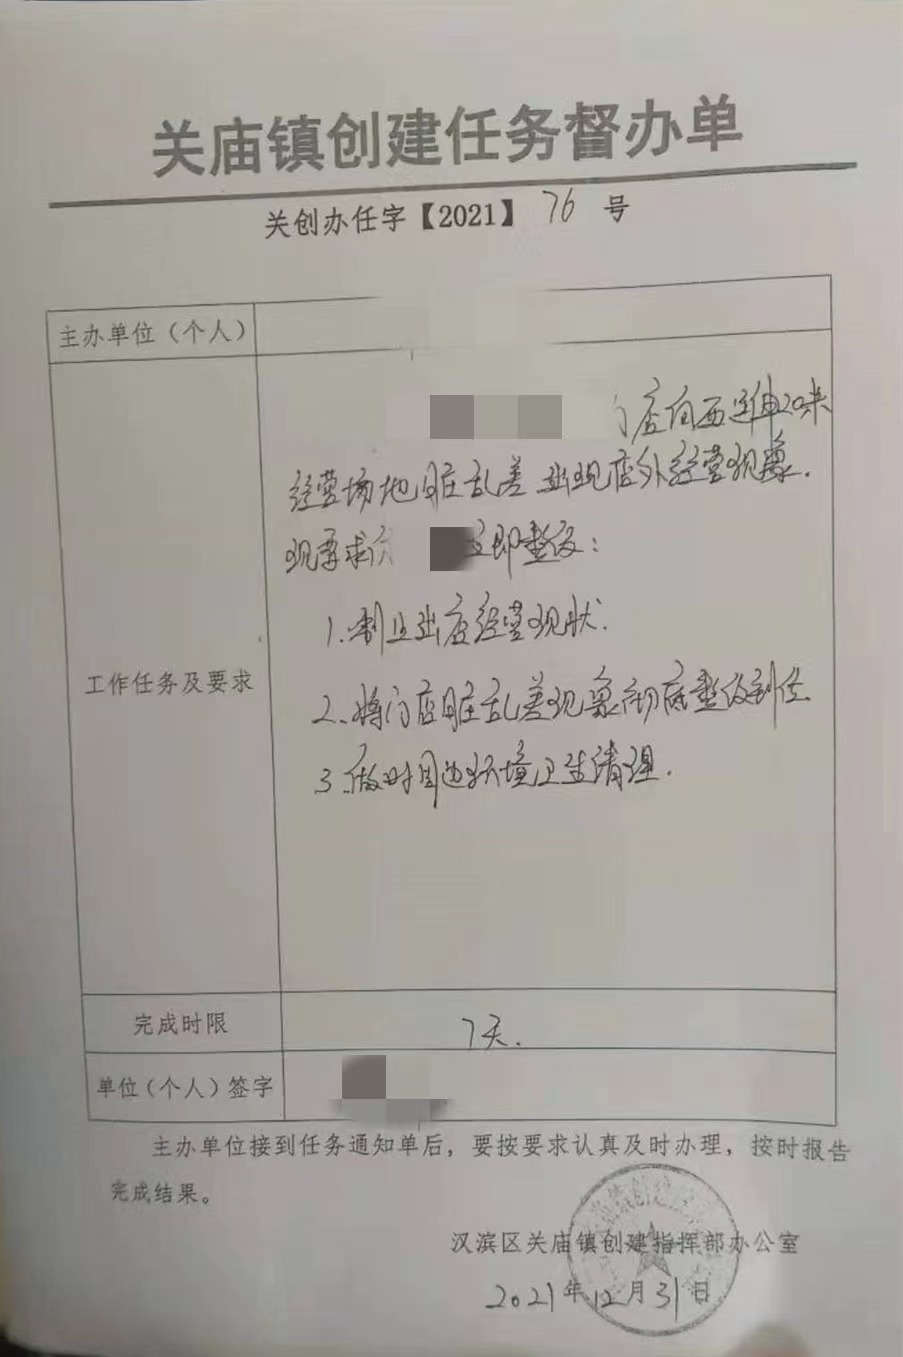 关庙镇创建任务督办单
关创办任字【2021】76号
主办单位（个人）
门店向西延伸20米
经营场地脏乱差 出现店外经营现象.
现要求 立即整改：
工作任务及要求
1.制止出店经营现状.
2.将门店脏乱差现象彻底整改到位
3.做好周边环境卫生清理.
完成时限 7天.
单位（个人）签字
主办单位接到任务通知单后，要按要求认真及时办理，按时报告
完成结果。
汉滨区关庙镇创建指挥部办公室
2021年12月31日